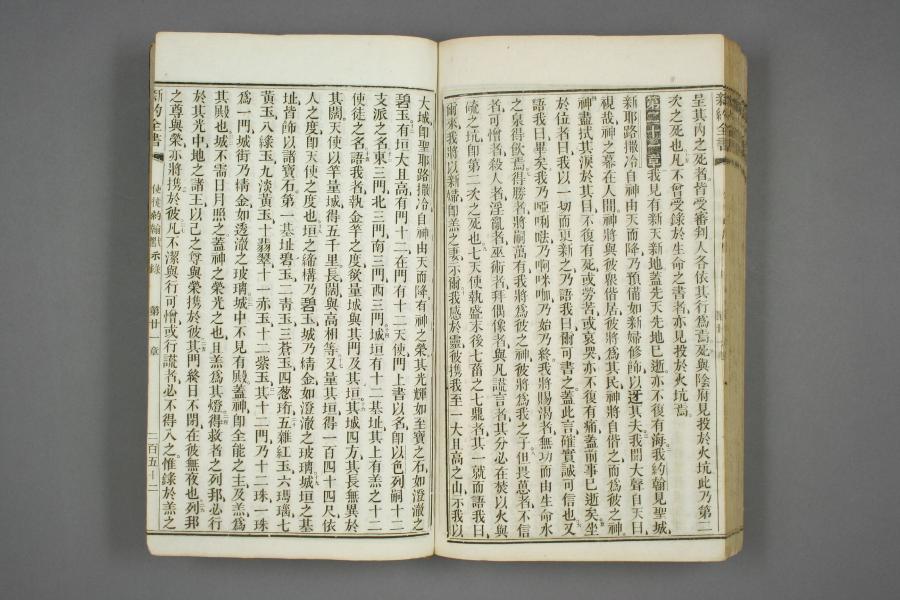 呈其內之死者皆受審判人各依其行爲焉死與陰府見投於火坑此乃第二
次之死也凡不曾受錄於生命之書者亦見投於火坑焉
第二十一章我見有新天新地蓋先天先地已逝亦不復有海我約翰見聖城
新耶路撒冷自神由天而降乃預備如新婦修飾以迓其夫我聞大聲自天曰
視哉神之幕在人間神將與彼眾偕居彼將爲其民神將自偕之而爲彼之神
神盡拭其淚於其目不復有死或勞苦或哀哭亦不復有痛蓋前事已逝矣坐
於位者曰我以一切而更新之乃語我曰爾可書之蓋此言確實誠可信也又
語我曰畢矣我乃啞唎咹乃啊咪咖乃始乃終我將賜渴者無功而由生命水
之泉得飲焉得勝者將嗣萬有我將爲彼之神彼將爲我之子但畏葸者不信
者可憎者殺人者淫亂者巫術者拜偶像者與凡謊言者其分必在焚以火與
硫之坑卽第二次之死也七天使執盛末後七菑之七鼎者其一就而語我曰
爾來我將以新婦卽羔之妻示爾我感於靈彼攜我至一大且高之山示我以
大城卽聖耶路撒冷自神由天而降有神之榮其光輝如至寶之石如澄澈之
碧玉有垣大且高有門十二在門有十二天使門上書以名卽以色列嗣十二
支派之名東三門北三門南三門西三門城垣有十二基址其上有羔之十二
使徒之名語我者執金竿之度欲量城與其門及其垣其城四方其長無異於
其闊天使以竿量城得五千里長闊與高相等又量其垣得一百四十四尺依
人之度卽天使之度也垣之締構乃碧玉城乃精金如澄澈之玻璃城垣之基
址皆飾以諸寶石第一基址碧玉二青玉三蒼玉四葱珩五雜紅玉六瑪瑙七
黃玉八綠玉九淡黃玉十翡翠十一赤玉十二紫玉其十二門乃十二珠一珠
爲一門城街乃精金如透澈之玻璃城中不見有殿蓋神卽全能之主及羔爲
其殿也城不需日月照之蓋神之榮光之也且羔爲其燈得救者之列邦必行
於其光中地之諸王以己之尊與榮攜於彼其門終日不閉在彼無夜也列邦
之尊與榮亦將攜於彼凡不潔與行可憎或行謊者必不得入之惟錄於羔之
新約全書
使徒約翰默示錄
第廿一章
二百五十二